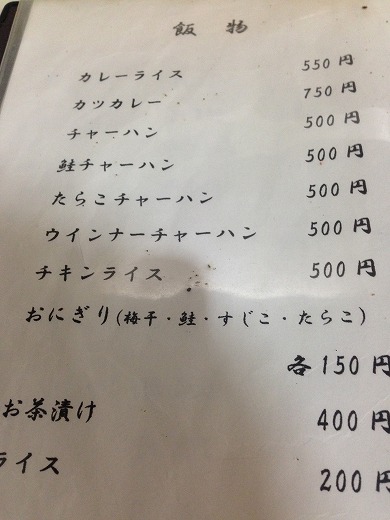 飯物
カレーライス 550円
カツカレー 750円
チャーハン 500円
鮭チャーハン 500円
たらこチャーハン 500円
ウインナーチャーハン 500円
チキンライス 500円
おにぎり(梅干・鮭・すじこ・たらこ)
各150円
お茶漬け 400円
ライス 200円